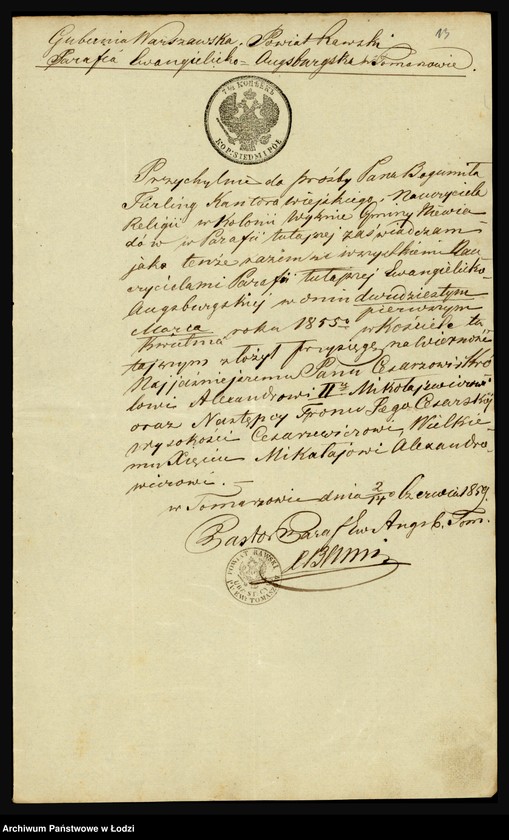 13
Gubernia Warszawska. Powiat Rawski
Parafia Ewangielicko=Augsburgska w Tomaszowie.
7½ КОПѢЕКЪ
KOP: SIEDM I PÓŁ
Przychylnie do prośby Pana Bogumiła
Fürling Kantora wiejskiego, Nauczyciela
Religii w Kolonii Gminy Niewia
dów w Parafii tutajszej zaświadczam
jako tenże razem ze wszystkiemi Nau
czycielami Parafii tutajszej Ewangielicko
Augsburgskiej w dniu dwudziestym
pierwszym
Marca roku 1855º w Kościele tu
Kwietnia
tajszym złożył przysięgę na wierność
Najjaśniejszemu Panu Cesarzowi i Kró
lowi Alexandrowi II Mikołajewiczowi
oraz Następcy Tronu Jego Cesarskiej
wysokości Cesarzewiczowi Wielkie
mu Xięciu Mikołajowi Alexandro
wiczowi. —
w Tomaszowie dnia 2/14 Czerwca 1859.
Pastor Paraf Ew Augsb. Tom.
POWIAT RAWSKI
URz: ST: CY:
TOMASZ
Archiwum Państwowe w Łodzi